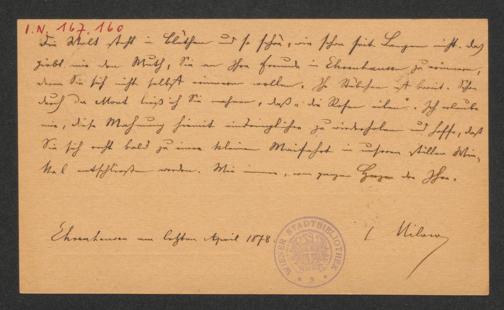 I.N. 167.160
Die Welt steht in Blüthen und so schön, wie schon seit Langem nicht. das
giebt mir den Muth, Sie an Ihre Freunde in Ehrenhausen zu erinnern,
wenn Sie sich nicht selbst erinnern wollen. Ihr Stübchen ist bereit. Schon
durch die Mont ließ ich Sie mahnen, daß „die Rosen eilen". Ich erlaube
mir, diese Mahnung hiemit eindringlicher zu wiederholen und hoffe, daß
Sie sich recht bald zu einer kleinen Maifahrt in unseren stillen Win-
kel entschließen werden. Wie immer, von ganzem Herzen der Ihre.
Ehrenhausen am letzten April 1878.
Milow
WIENER STADTBIBLIOTHEK